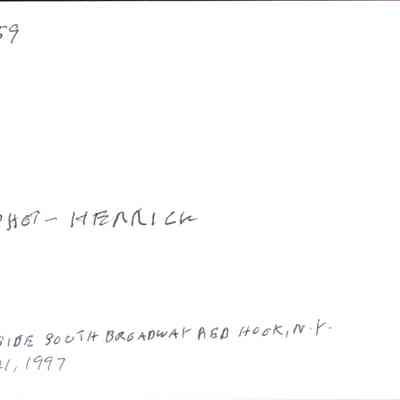 59
PHOT- HERRICK
SIDE SOUTH BROADWAY RED HOOK, N.Y.
21, 1997